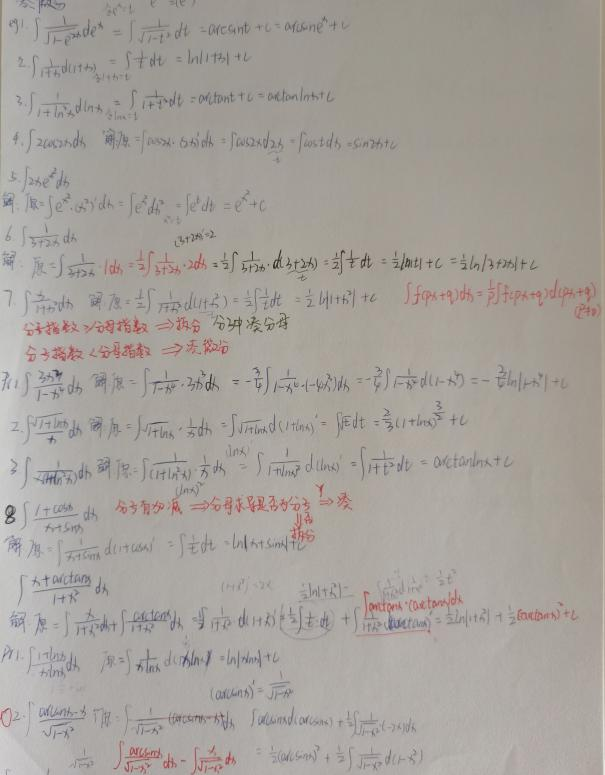 eg1. ∫ 1/√(1-e^2x) de^x = ∫ 1/√(1-t²) dt = arcsint + C = arcsine^x + C
令e^x=t
2. ∫ 1/(1+x) d(1+x) = ∫ 1/t dt = ln|1+x| + C
令1+x=t
3. ∫ 1/(1+ln²x) dlnx = ∫ 1/(1+t²) dt = arctant + C = arctanlnx + C
令lnx=t
4. ∫ 2cos2x dx 解:原=∫cos2x·(2x)'dx = ∫cos2x d2x = ∫cost dx = sin2x + C
5. ∫ 2xe^x² dx
解:原=∫e^x²·(x²)'dx = ∫e^x² dx² = ∫e^t dt = e^x² + C
x²=t
6. ∫ 1/(3+2x) dx (3+2x)'=2
解:原=∫ 1/(3+2x)·1dx = 1/2 ∫ 1/(3+2x)·2dx = 1/2 ∫ 1/(3+2x)·d(3+2x) = 1/2 ∫ 1/t dt = 1/2 ln|t| + C = 1/2 ln|3+2x| + C
7. ∫ x/(1+x²) dx 解:原=1/2 ∫ 1/(1+x²) d(1+x²) = 1/2 ∫ 1/t dt = 1/2 ln|1+x²| + C ∫f(px+q)dx = 1/p ∫f(px+q)d(px+q)
(p≠0)
分子指数≥分母指数 ⇒ 拆分 分子中凑分母
分子指数<分母指数 ⇒ 凑微分
1. ∫ 3x³/(1-x⁴) dx 解:原=∫ 1/(1-x⁴)·3x³dx = -3/4 ∫ 1/(1-x⁴)·(-4x³)dx = -3/4 ∫ 1/(1-x⁴) d(1-x⁴) = -3/4 ln|1-x⁴| + C
2. ∫ √(1+lnx)/x dx 解:原=∫√(1+lnx)·1/x dx = ∫√(1+lnx) d(1+lnx)' = ∫√t dt = 2/3 (1+lnx)^3/2 + C
3 ∫ 1/(x(1+ln²x)) dx 解:原=∫ 1/(1+ln²x)·1/x dx = ∫ 1/(1+lnx²) d(lnx)' = ∫ 1/(1+t²) dt = arctanlnx + C
(lnx)' (lnx)²
8 ∫ (1+cosx)/(x+sinx) dx 分子有加减 ⇒ 分母求导是否为分子 ⇒Y 凑
⇓否
拆分
解:原=∫ 1/(x+sinx) d(1+cosx)' = ∫ 1/t dt = ln|x+sinx| + C
∫ (x+arctanx)/(1+x²) dx (1+x²)'=2x
∫arctanx·(arctanx)'dx
解:原=∫ x/(1+x²) dx + ∫ arctanx/(1+x²) dx = 1/2 ∫ 1/(1+x²) d(1+x²) (1/2 ∫ 1/t dt) + = 1/2 ln|1+x²| + 1/2 (arctanx)² + C
1. ∫ (1+lnx)/(xlnx) dx 原=∫ 1/(xlnx) d(xlnx) = ln|xlnx| + C
(arcsinx)' = 1/√(1-x²)
2. ∫ (arcsinx-x)/√(1-x²) dx 原=∫ 1/√(1-x²) (arcsinx-x)dx ∫arcsinxd(arcsinx) + 1/2 ∫ 1/√(1-x²) (-2x)dx
1/√(1-x²) ∫ arcsinx/√(1-x²) dx - ∫ x/√(1-x²) dx = 1/2 (arcsinx)² + 1/2 ∫ 1/√(1-x²) d(1-x²)